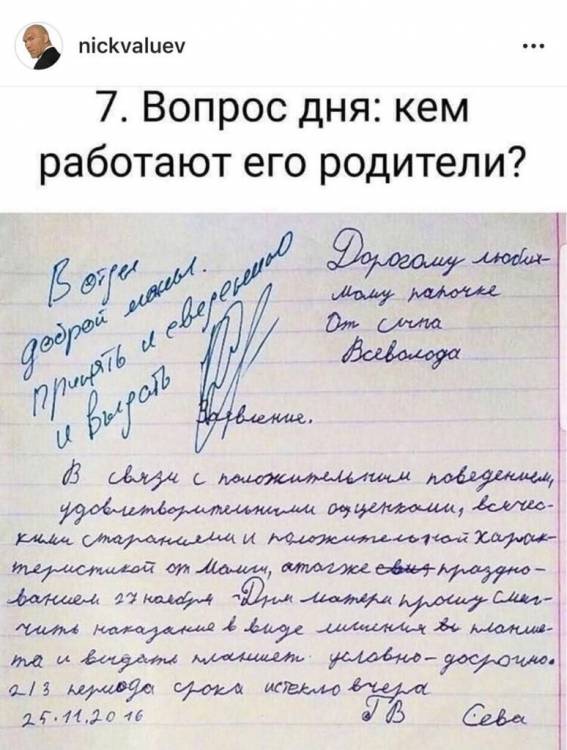 nickvaluev
7. Вопрос дня: кем
работают его родители?
В отдел
доброй мамы.
принять к сведению
и выдать
Дорогому люби-
мому папочке
От сына
Всеволода
Заявление.
В связи с положительным поведением,
удовлетворительными оценками, всячес-
кими стараниями и положительной харак-
теристикой от Мамы, а также праздно-
ванием 27 ноября "Дня матери прошу смяг-
чить наказание в виде лишения планше-
та и выдать планшет условно-досрочно.
2/3 периода срока истекло вчера
25.11.2016 Сева